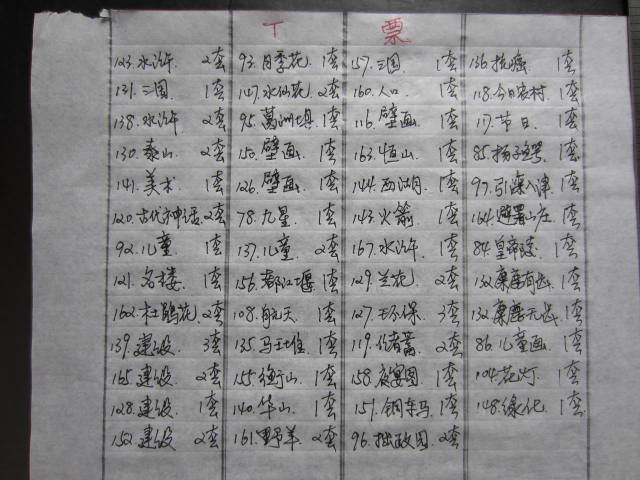 T 票
123.水浒 2套 93.月季花 1套 57.三国 1套 136.抗癌 1套
131.三国 1套 147.水仙花 2套 160.人口 1套 118.今日农村 1套
138.水浒 2套 95.葛洲坝 1套 116.壁画 1套 117.节日 1套
130.泰山 2套 150.壁画 1套 163.恒山 1套 85.扬子鳄 1套
141.美术 1套 126.壁画 1套 144.西湖 1套 97.引滦入津 1套
120.古代神话 2套 78.九星 1套 143.火箭 1套 164.避暑山庄 1套
92.儿童 1套 137.儿童 2套 167.水浒 1套 84.皇帝陵 1套
121.名楼 1套 156.都江堰 1套 129.兰花 2套 132.麋鹿有齿 1套
162.杜鹃花 2套 108.航天 1套 127.环保 3套 132.麋鹿无齿 1套
139.建设 3套 135.马王堆 1套 119.储蓄 2套 86.儿童画 1套
165.建设 2套 155.衡山 1套 158.夜宴图 1套 104.花灯 1套
128.建设 1套 140.华山 1套 151.铜车马 1套 148.绿化 1套
152.建设 2套 161.野羊 2套 96.拙政园 2套